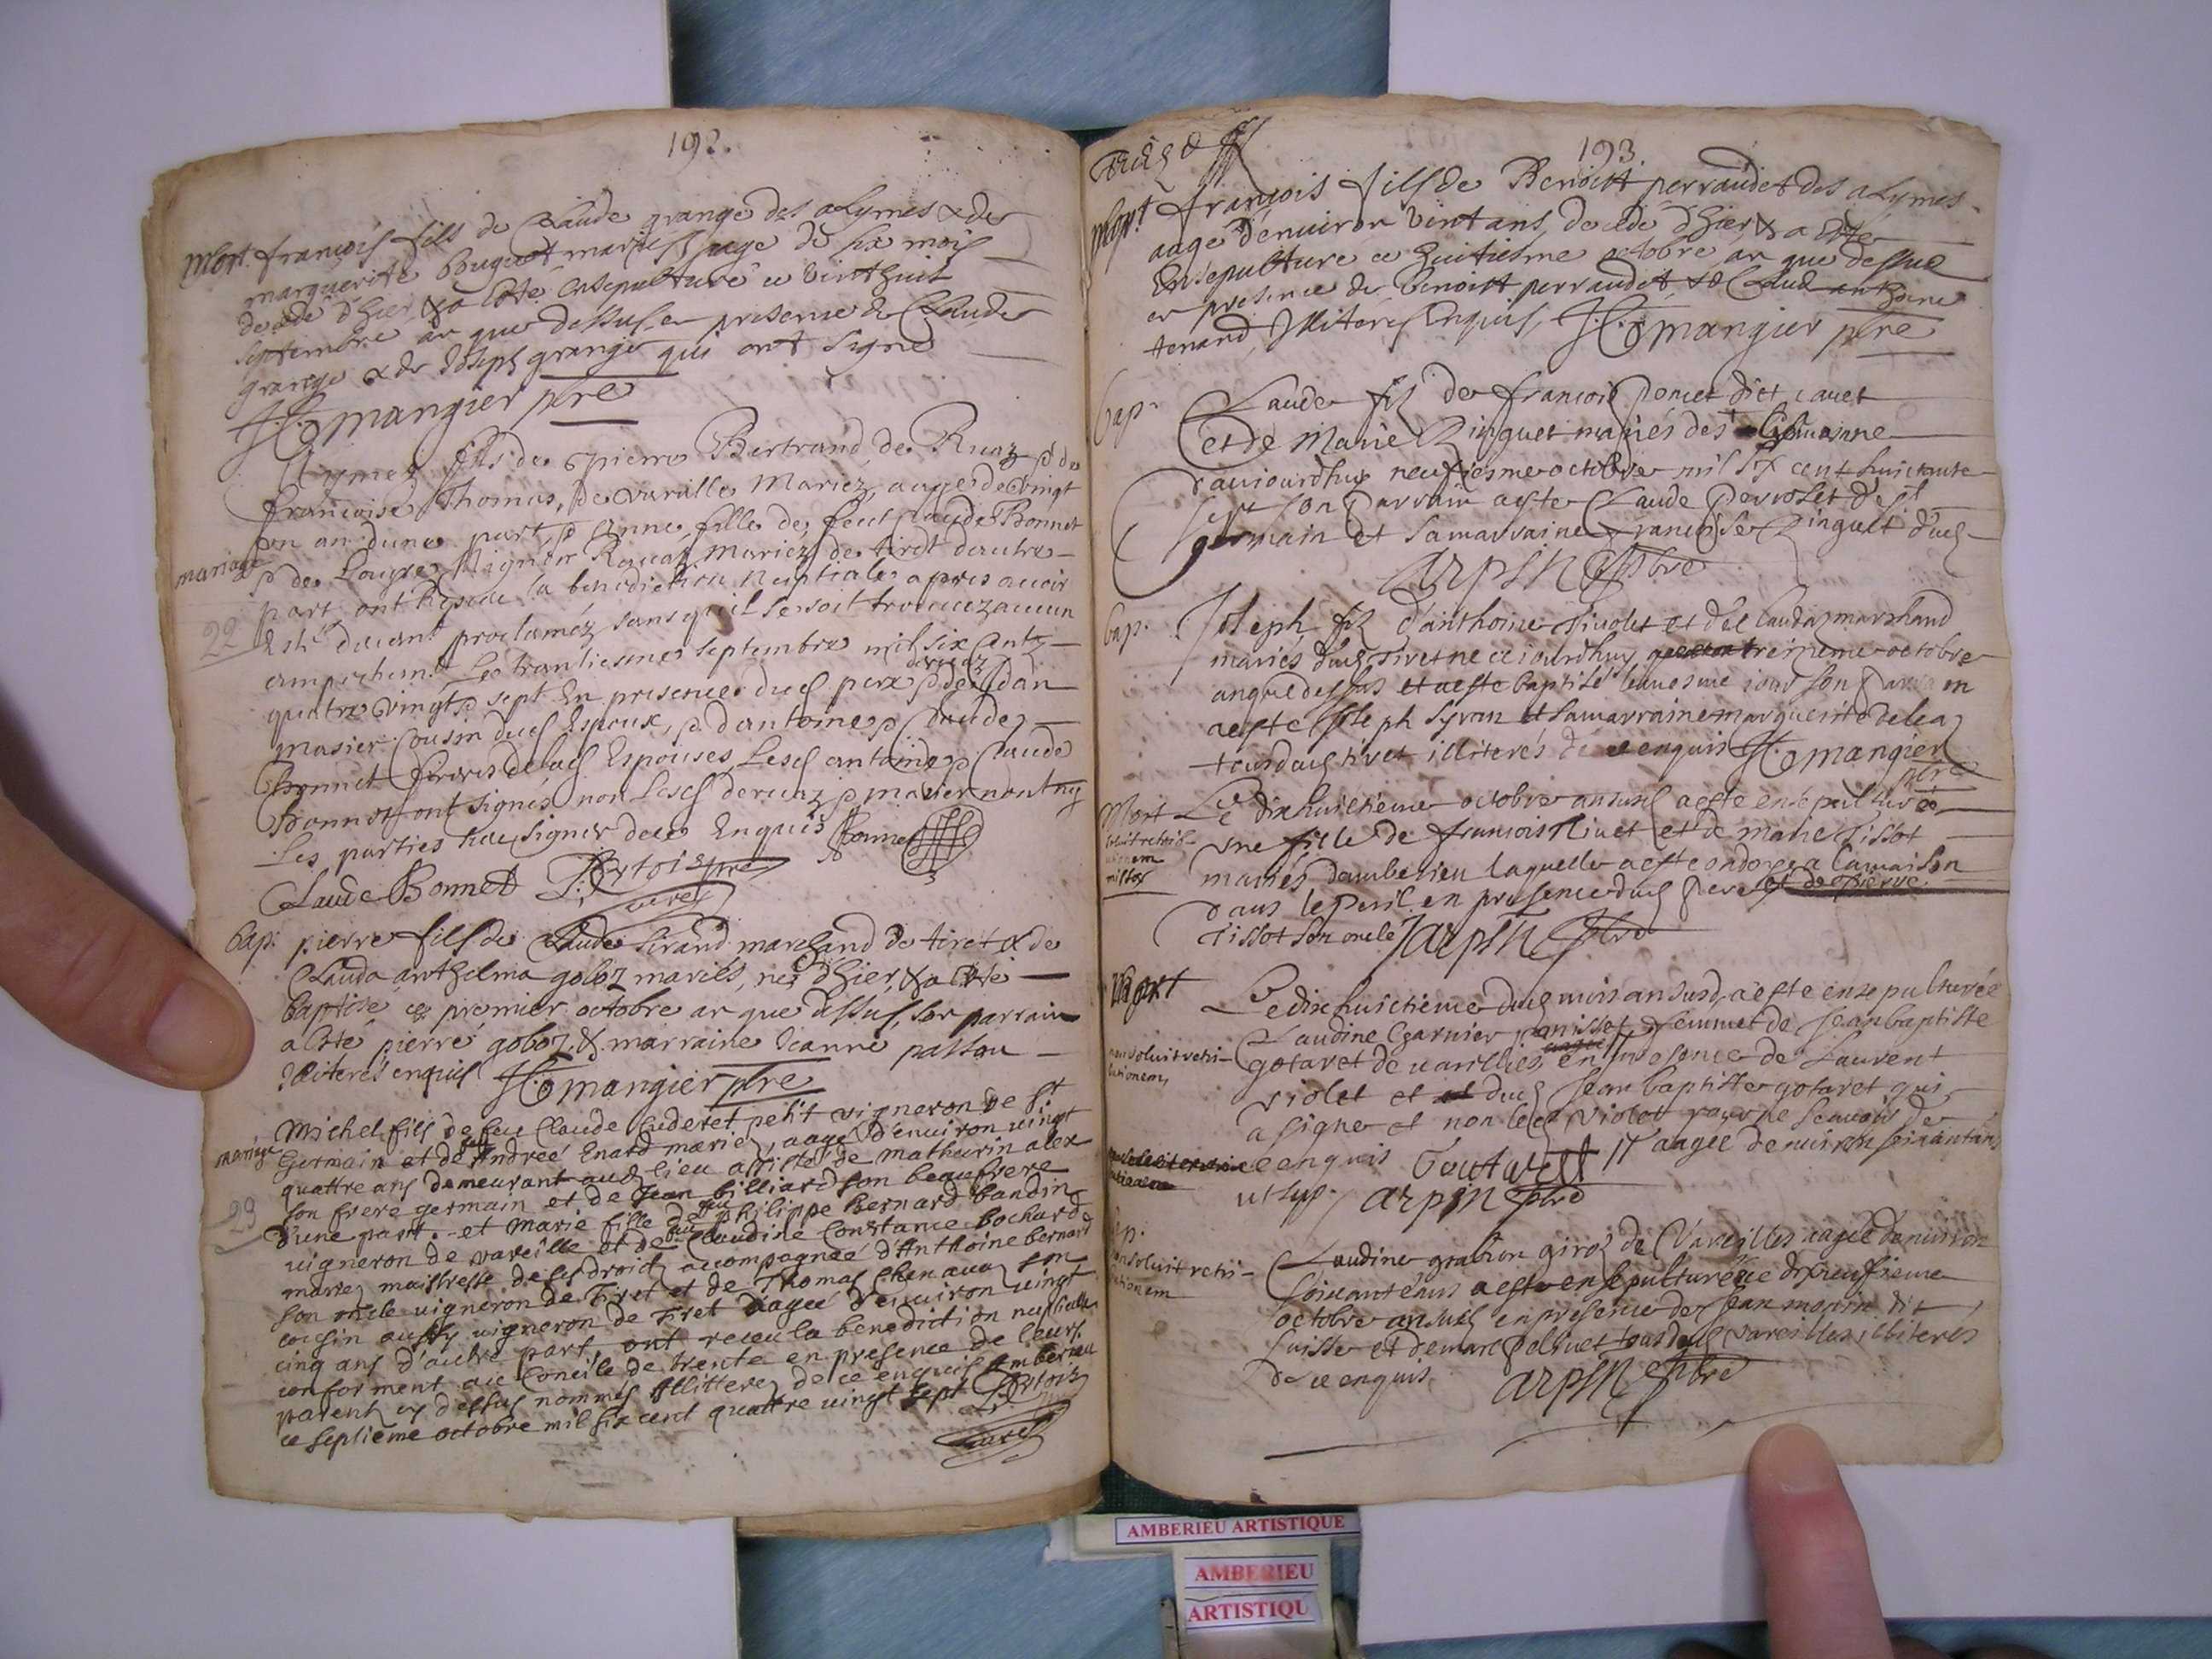 192.
Mort. françois fils de Claude grange des alymes & de
marguerite Bouguet mariés, aagé de six mois
decedé d'hier, & a esté ensepulturé ce vinthuit
septembre an que dessus, en presence de Claude
grange & de Joseph grange qui ont signé
H. mangier pbre
Aymez fils de pierre Bertrand, de Ruaz & de
françoise Thomas, de vareille Mariez, aagé de vingt
un an dune part, & Anne, fille de feut Claude Bonnet
mariage & de Mariez de tiret dautre
part ont Reçeu la benediction Nuptiale apres avoir
22 Esté devant proclaméz sans qu'il se soit trouvez aucun
empechement Le trantiesme septembre mil six Centz
quatre vingt & sept En presence dud pere & de Jdan
deruaz
masier Cousin dud Espoux, & dantoine & Claude
Bonnet freres delad Espouse, Lesd antoine & Claude
Bonnet ont signés non Lesd deruaz & masier non ny
Les parties p signer de ce Enquis Bonnet
Claude Bonnet P. Ertois pre
Curé
Bap. pierre fils de Claude Sirand marchand de tiret & de
Clauda anthelma goboz mariés, né d'hier, & a esté
baptisé ce premier octobre an que dessus, son parrain
a esté pierre goboz, & marraine Jeanne passou
Illiterés enquis H. mangier pbre
Michel fils de feu Claude Cuderet petit vigneron de St
mariage Germain et de feu Andreé Enard mariez, aagé d'environ vingt
quattre ans demeurant aud lieu assisté de mathurin alex
23 son frere germain et de Jean billiard son beaufrere
d'une part. et Marie fille de feu philippe Bernard bandin
vigneron de vareille et de feu Claudine Constance bochard
mariez maistresse de ses droitz accompagnee d'Anthoine bernard
son oncle vigneron de Tiret et de Thomas Chenavaz son
cousin aussy vigneron de Tiret aagee d'environ vingt
cinq ans d'autre part, ont receu la benediction nuptialle
conforment au Concile de trente en presence de leurs
parents cy dessus nommés Illitterez de ce enquis Amberieu
ce septieme octobre mil six cent quattre vingt sept P. Ertois
Curé
193.
Mort françois fils de Benoist perraudet des alymes
aagé d'environ vint ans, decedé d'hier, & a esté
Ensepulturé ce huitiesme octobre an que dessus
en presence de benoist perraudet & de Claud anthoine
tenand Illiterés Enquis, H. mangier pbre
bap. Claude fiz de francois poncet dict cavet
et de Marie Zinguet mariés des
d'auiourdhuy neufiesme octobre mil six cent huictante
sept son parrain a este Claude perrolet de st
germain et sa marraine francoise Zinguet dud
arpin pbre
bap. Joseph fiz d'anthoine Tivolet et de Claudaz marchand
mariés dud Tiret né ce iourdhuy treizeme octobre
an que dessus et a este baptisé le mesme iour son parrain
a este Joseph Syran et sa marraine marguerite
tous dud tiret illiterés de ce enquis H. mangier
pbre
Mort Le dixhuictieme octobre an susd a este ensepulturée
une fille de francois Rivet et de marie Tissot
mariés damberieu laquelle a este ondoyee a la maison
dans le peril en presence dud pere et de pierre
Tissot son oncle arpin pbre
Mort Le dixhuictieme dud mois an susd a este ensepulturée
Claudine Garnier femme de Jean baptiste
non soluit retri-
butionem
gotaret de vareilles en presence de Laurent
violet et dud Jean baptiste gotaret qui
a signé et non led violet pour ne scavoir de
ce enquis Goutaret aagee denviron soixantans
ut sup. arpin pbre
Sep.
non soluit retri-
butionem
Claudine grabon giroz de Vareilles aagee denviron
soixanteans a este ensepulturée ce dixneufieme
octobre an susd en presence de Jean monin dit
Suisse et de marc pelliuet tous dud vareilles illiterés
de ce enquis arpin pbre
AMBERIEU ARTISTIQUE
AMBERIEU
ARTISTIQU